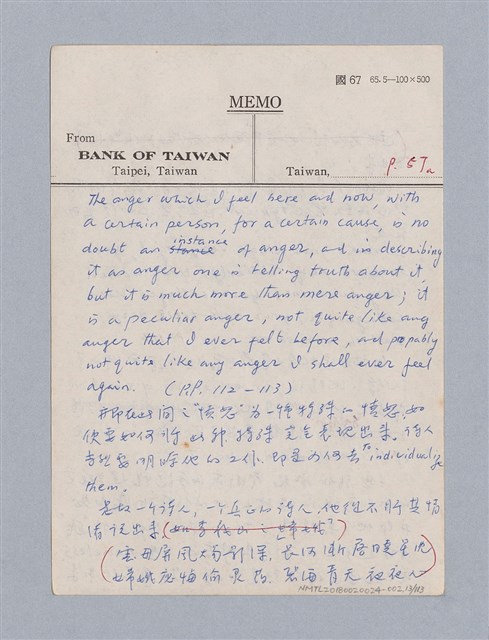 國 67 65. 5—100×500
MEMO
From
BANK OF TAIWAN
Taipei, Taiwan
Taiwan,
P. 57a
The anger which I feel here and now, with
a certain person, for a certain cause, is no
doubt an instance of anger, and in describing
it as anger one is telling truth about it,
but it is much more than mere anger; it
is a peculiar anger, not quite like any
anger that I ever felt before, and probably
not quite like any anger I shall ever feel
again. (P.P. 112—113)
之"憤怒"為一種特殊之憤怒, 如
欲要如何將此种特殊完全表現出來. 詩人
的工作, 即是為何去 to individualize
them.
是故一个詩人, 一个真正的詩人他從不將其情
緒說出來 (如李義山之嫦娥?)
(雲母屏風燭影深, 長河漸落曉星沈
嫦娥應悔偷灵药, 碧海青天夜夜心)
NMTL20180020024-002 13/113